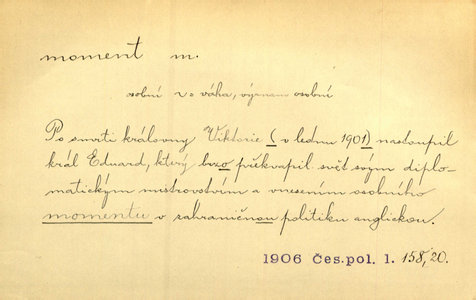 moment m.
osobní v: váha, význam osobní
Po smrti královny Viktorie (v lednu 1901) nastoupil
král Eduard, který brzo překvapil svět svým diplo-
matickým mistrovstvím a vnesením osobního
momentu v zahraničnou politiku anglickou.
1906 Čes. pol. 1. 158, 20.